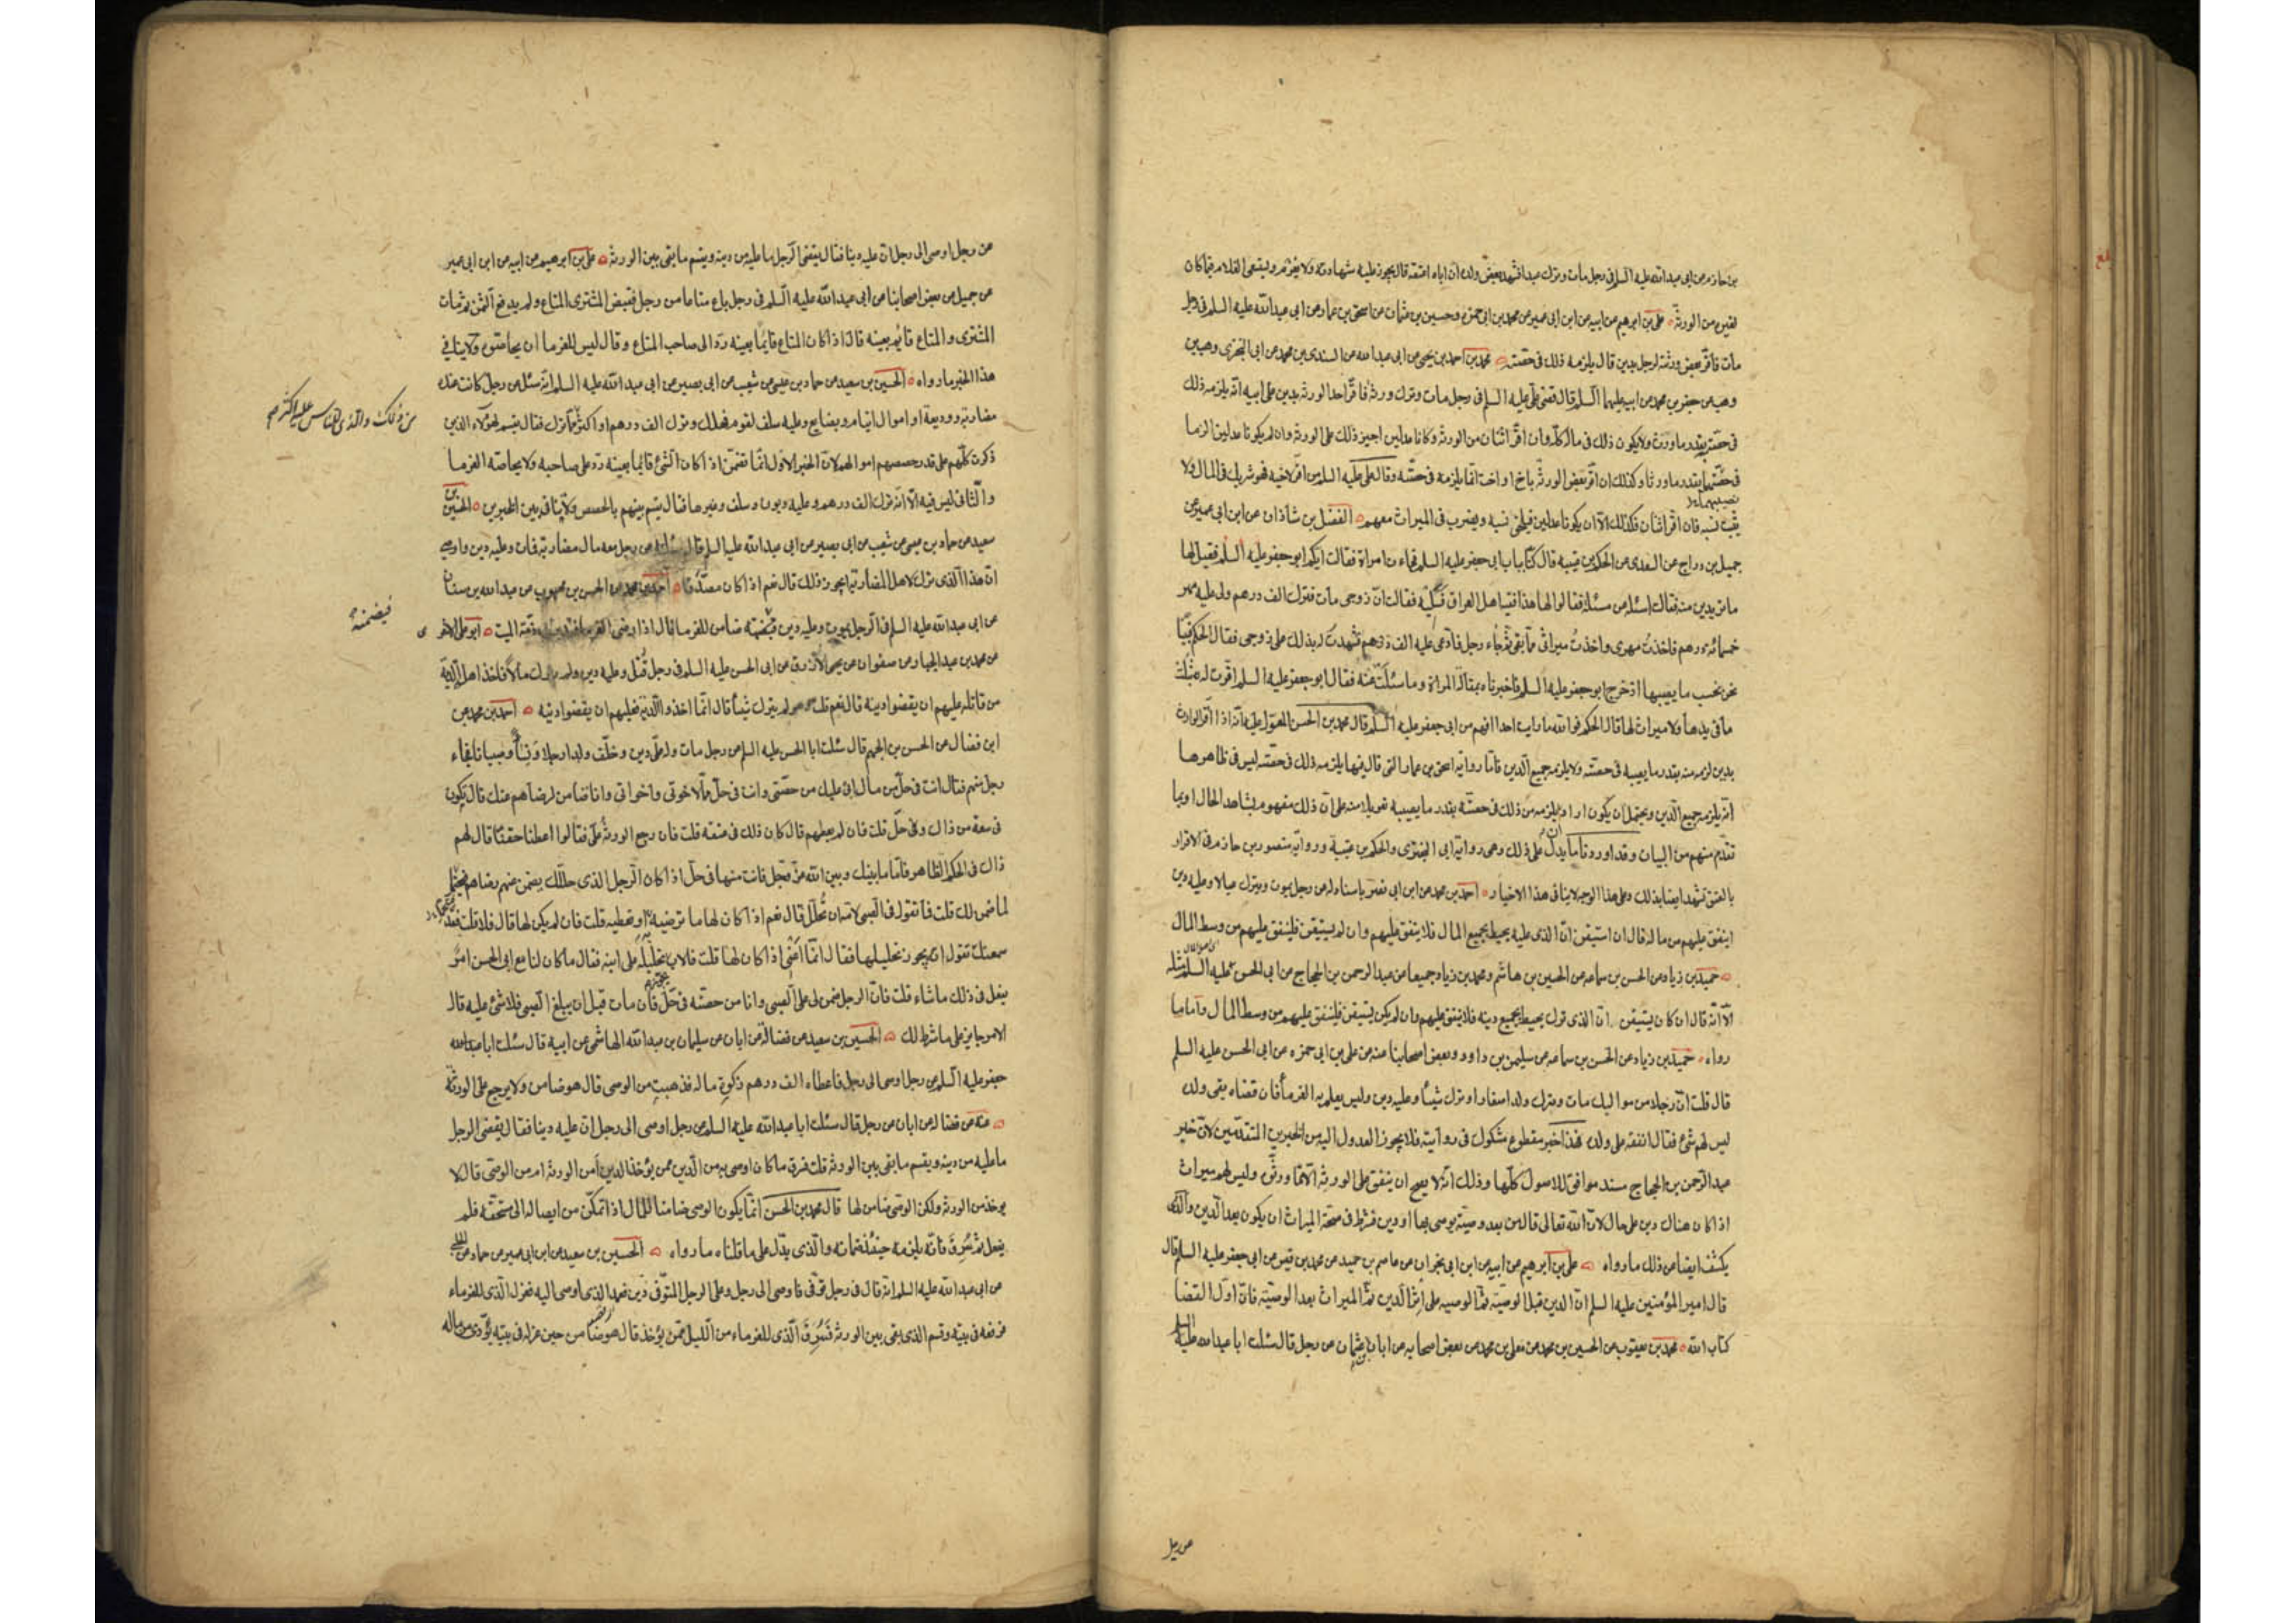 بن حازم عن ابى عبدالله عليه السلم فى رجل مات وترك عبدا فشهد بعض ولده ان اباه اعتقه قال يجوز عليه شهادته ولا يغرم ويستسعى الغلام فيما كان
لغيره من الورثة على بن ابرهيم عن ابيه عن ابن ابى عمير عن محمد بن ابى حمزه وحسين بن عثمان عن اسحق بن عمار عن ابى عبدالله عليه السلم فى رجل
مات فاقر بعض ورثته لرجل بدين قال يلزمه ذلك فى حصته محمد بن احمد بن يحيى عن ابى عبدالله عن السندى بن محمد عن ابى البخترى وهب بن
وهب عن جعفر بن محمد عن ابيه عليهما السلم قال قضى على عليه السلم فى رجل مات وترك ورثة فاقر احد الورثه بدين على ابيه انه يلزمه ذلك
فى حصته بقدر ما ورث ولا يكون ذلك فى ماله كله وان اقر اثنان من الورثه وكانا عدلين اجيز ذلك على الورثه وان لم يكونا عدلين الزما
فى حصتهما بقدر ما ورثا وكذلك ان اقر بعض الورثة باخ او اخت انما يلزمه فى حصته وقال على عليه السلم من اقر لاخيه فهو شريك فى المال ولا
يثبت نسبه فان اقر اثنان فكذلك الا ان يكونا عدلين فيلحق نسبه ويضرب فى الميراث معهم الفضل بن شاذان عن ابن ابى عمير عن
جميل بن دراج عن السعدى عن الحكم بن عتيبه قال كنا بباب ابى جعفر عليه السلم فجاءت امراة فقالت ايكم ابو جعفر عليه السلم فقيل لها
ما تريدين منه فقالت اسئله عن مسئله فقالوا لها هذا فقيه اهل العراق فسليه فقالت ان زوجى مات وترك الف درهم ولى عليه مهر
خمسمائه درهم فاخذت مهرى واخذت ميراثى مما بقى فجاء رجل فادعى عليه الف درهم فشهدت له بذلك على زوجى فقال الحكم فبينا
نحن نحسب ما يصيبها اذ خرج ابو جعفر عليه السلم فاخبرناه بمقالة المراة وما سئلت عنه فقال ابو جعفر عليه السلم اقرت له بثلث
ما فى يدها ولا ميراث لها قال الحكم فوالله ما رايت احدا افهم من ابى جعفر عليه السلم قال محمد بن الحسن المعول عليه انه اذا اقر الوارث
بدين لزمه منه بقدر ما يصيبه فى حصته ولا يلزمه جميع الدين فاما رواية اسحق بن عمار التى قال فيها يلزمه ذلك فى حصته ليس فى ظاهرها
انه يلزمه جميع الدين ويحتمل ان يكون اراد يلزمه من ذلك فى حصته بقدر ما يصيبه تعويلا منه على ان ذلك مفهوم بشاهد الحال او بما
تقدم منهم من البيان وقد اوردنا ما يدل على ذلك وهى رواية ابى البخترى والحكم بن عتيبة ورواية منصور بن حازم فى الاقرار
بالعتق تشهد ايضا بذلك وعلى هذا الوجه لا ينافى هذا الاخبار احمد بن محمد عن ابن ابى نصر باسناد له عن رجل يموت ويترك عيالا وعليه دين
اينفق عليهم من ماله قال ان استيقن ان الذى عليه يحيط بجميع المال فلا ينفق عليهم وان لم يستيقن فلينفق عليهم من وسط المال
حميد بن زياد عن الحسن بن سماعه عن الحسين بن هاشم ومحمد بن زياد جميعا عن عبد الرحمن بن الحجاج عن ابى الحسن عليه السلم مثله
الا انه قال ان كان يستيقن ان الذى ترك يحيط بجميع دينه فلا ينفق عليهم وان لم يكن يستيقن فلينفق عليهم من وسط المال واما ما
رواه حميد بن زياد عن الحسن بن سماعه عن سليمن بن داود وبعض اصحابنا عنه عن على بن ابى حمزه عن ابى الحسن عليه السلم
قال قلت ان رجلا من مواليك مات وترك ولدا صغارا وترك شيئا وعليه دين وليس يعلم به الغرماء فان قضاه بقى ولده
ليس لهم شئ فقال انفقه على ولده فهذا خبر مقطوع مشكوك فى روايته فلا يجوز العدول اليه من الخبرين المتقدمين لان خبر
عبد الرحمن بن الحجاج مسند موافق للاصول كلها وذلك انه لا يصح ان ينفق على الورثه الا مما ورثوه وليس لهم ميراث
اذا كان هناك دين على حال لان الله تعالى قال من بعد وصية يوصى بها او دين فشرط فى صحة الميراث ان يكون بعد الدين والذى
يكشف ايضا عن ذلك ما رواه على بن ابرهيم عن ابيه عن ابن ابى نجران عن عاصم بن حميد عن محمد بن قيس عن ابى جعفر عليه السلم قال
قال امير المؤمنين عليه السلم ان الدين قبل الوصية ثم الوصيه على اثر الدين ثم الميراث بعد الوصية فان اول القضا
كتاب الله محمد بن يعقوب عن الحسين بن محمد عن معلى بن محمد عن بعض اصحابه عن ابان بن عثمان عن رجل قال سئلت ابا عبدالله عليه السلم
عن رجل
عن رجل اوصى الى رجل ان عليه دينا فقال يقضى الرجل ما عليه من دينه ويقسم ما بقى بين الورثه على بن ابرهيم عن ابيه عن ابن ابى عمير
عن جميل عن بعض اصحابنا عن ابى عبدالله عليه السلم فى رجل باع متاعا من رجل فقبض المشترى المتاع ولم يدفع الثمن ثم مات
المشترى والمتاع قايم بعينه قال اذا كان المتاع قايما بعينه رد الى صاحب المتاع وقال ليس للغرما ان يحاصوه ولا ينافى
هذا الخبر ما رواه الحسين بن سعيد عن حماد بن عيسى عن شعيب عن ابى بصير عن ابى عبدالله عليه السلم انه سئل عن رجل كانت عنده
مضاربه ووديعة او اموال ايتام وبضايع وعليه سلف لقوم فهلك وترك الف درهم او اكثر مما ترك فقال يقسم لهؤلاء الذين
من ذلك والذى للناس عليه اكثر
ذكرت كلهم على قدر حصصهم اموالهم لان الخبر الاول انما تضمن اذا كان الشئ قائما بعينه رد على صاحبه ولا يحاصه الغرما
والثانى ليس فيه الا انه ترك الف درهم وعليه ديون وسلف وغيرها فقال يقسم بينهم بالحصص ولا ينافى بين الخبرين الحسين بن
سعيد عن حماد بن عيسى عن شعيب عن ابى بصير عن ابى عبدالله عليه السلم قال سئلته عن رجل معه مال مضاربة فمات وعليه دين واوصى
ان هذا الذى ترك لاهل المضاربة ايجوز ذلك قال نعم اذا كان مصدقا احمد بن محمد عن الحسن بن محبوب عن عبدالله بن سنان
عن ابى عبدالله عليه السلم فى الرجل يموت وعليه دين فيضمنه ضامن للغرما قال اذا رضى الغرماء فقد برئت ذمة الميت ابو على الاشعرى
فيضمنه
عن محمد بن عبد الجبار عن صفوان عن يحيى الازرق عن ابى الحسن عليه السلم فى رجل قتل وعليه دين ولم يترك مالا فاخذ اهله الدية
من قاتله عليهم ان يقضوا دينه قال نعم قلت وهو لم يترك شيئا قال انما اخذوا الدية فعليهم ان يقضوا دينه احمد بن محمد عن
ابن فضال عن الحسن بن الجهم قال سئلت ابا الحسن عليه السلم عن رجل مات وله على دين وخلف ولدا رجالا ونساء وصبيانا فجاء
رجل منهم فقال انت فى حل من مال ابى عليك من حصتى وانت فى حل مما لاخوتى واخواتى وانا ضامن لرضاهم عنك قال يكون
فى سعة من ذاك وفى حل قلت فان لم يعطهم قال كان ذلك فى عنقه قلت فان رجع الورثة على فقالوا اعطنا حقنا قال لهم
ذاك فى الحكم الظاهر فاما ما بينك وبين الله عز وجل فانت منها فى حل اذا كان الرجل الذى حللك يضمن عنهم رضاهم فيحتمل
لما ضمن لك قلت فما تقول فى الصبى لامه ان تحلل قال نعم اذا كان لها ما ترضيه او تعطيه قلت فان لم يكن لها قال فلا قلت فقد
سمعتك تقول انه يجوز تحليلها فقال انما اعنى اذا كان لها قلت فالاب يجوز تحليله على ابنه فقال ما كان لنا مع ابى الحسن امر
يفعل فى ذلك ما شاء قلت فان الرجل ضمن لى على الصبى وانا من حصته فى حل فان مات قبل ان يبلغ الصبى فلا شئ عليه قال
الامر جايز على ما شرط لك الحسين بن سعيد عن فضالة عن ابان عن سليمان بن عبدالله الهاشمى عن ابيه قال سئلت ابا عبدالله
جعفر عليه السلم عن رجل اوصى الى رجل فاعطاه الف درهم زكوة ماله فذهبت من الوصى قال هو ضامن ولا يرجع على الورثة
عنه عن فضاله عن ابان عن رجل قال سئلت ابا عبدالله عليه السلم عن رجل اوصى الى رجل ان عليه دينا فقال يقضى الرجل
ما عليه من دينه ويقسم ما بقى بين الورثه قلت فرق ما كان اوصى به من الدين ممن يؤخذ الدين امن الورثه ام من الوصى قال لا
يوخذ من الورثه ولكن الوصى ضامن لها قال محمد بن الحسن انما يكون الوصى ضامنا للمال اذا تمكن من ايصاله الى مستحقه فلم
يفعل ثم سرق فانه يلزمه حينئذ ضمانه والذى يدل على ما قلناه ما رواه الحسين بن سعيد عن ابن ابى عمير عن حماد عن الحلبى
عن ابى عبدالله عليه السلم انه قال فى رجل توفى فاوصى الى رجل وعلى الرجل المتوفى دين فعمد الذى اوصى اليه فعزل الذى للغرماء
فرفعه فى بيته وقسم الذى بقى بين الورثه فسرق الذى للغرماء من الليل ممن يؤخذ قال هو ضامن حين عزله فى بيته يؤدى من ماله